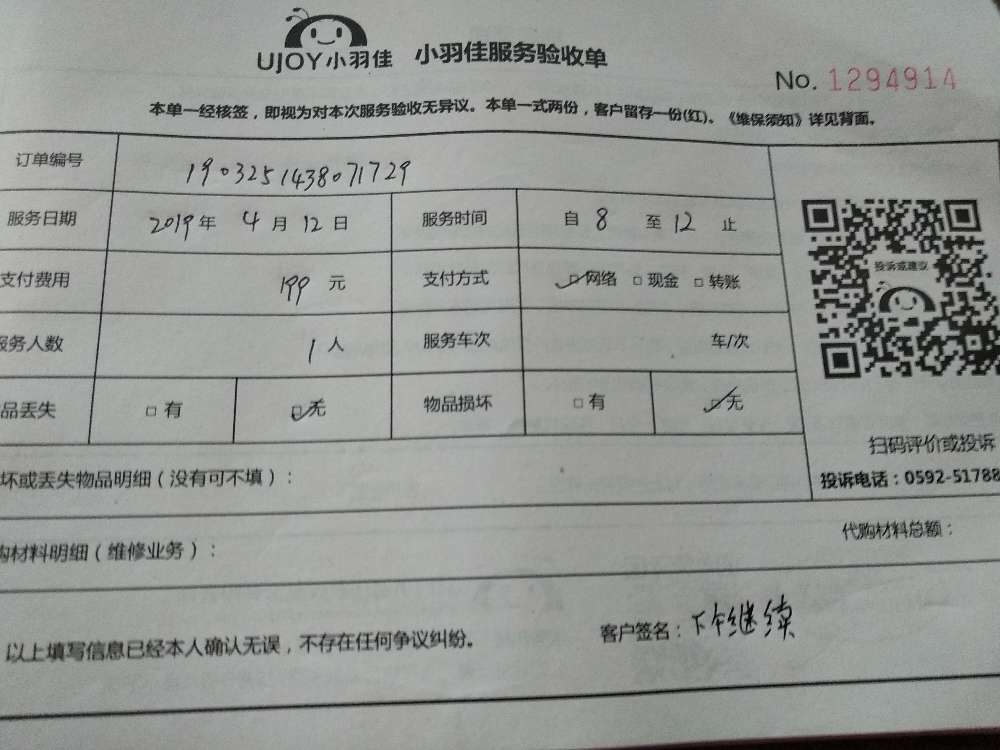 UJOY小羽佳 小羽佳服务验收单
No. 1294914
本单一经核签，即视为对本次服务验收无异议。本单一式两份，客户留存一份(红)。《维保须知》详见背面。
订单编号 1903251438071729
服务日期 2019年 4月 12日 服务时间 自 8 至 12 止
投诉或建议
支付费用 199 元 支付方式 ☑网络 □现金 □转账
服务人数 1人 服务车次 车/次
品丢失 □有 ☑无 物品损坏 □有 ☑无
扫码评价或投诉
坏或丢失物品明细（没有可不填）：
投诉电话：0592-51788
代购材料总额：
购材料明细（维修业务）：
以上填写信息已经本人确认无误，不存在任何争议纠纷。 客户签名：下午继续